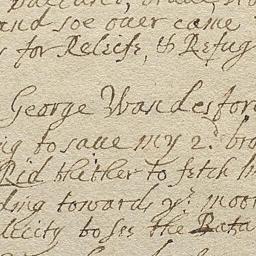 and soe ouer came
s for Releife, & Refug
George Wandesford
ing to saue my 2d. bro
Rid thither to fetch h
ding towards ye. moor
llicity to see the Bata